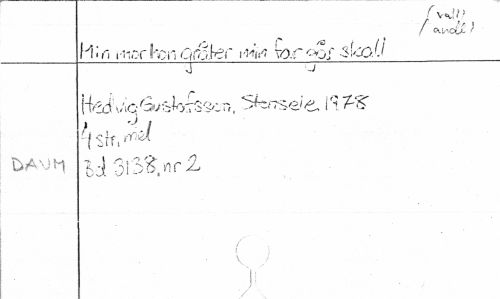 (vall)
/ andl)
Min mor hon gråter min far går skall
Hedvig Gustafsson, Stensele, 1978
4 str, mel
DAUM 3d 3138, nr 2